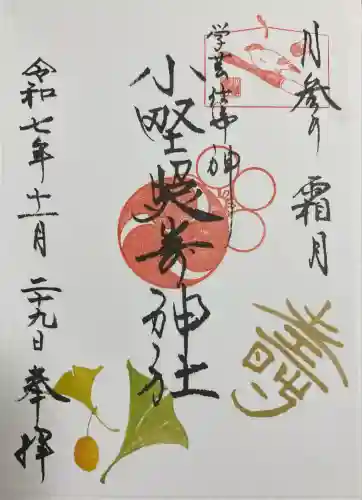 月参り 霜月
学芸徳守神
小野照崎神社
令和七年十一月二十九日奉拝